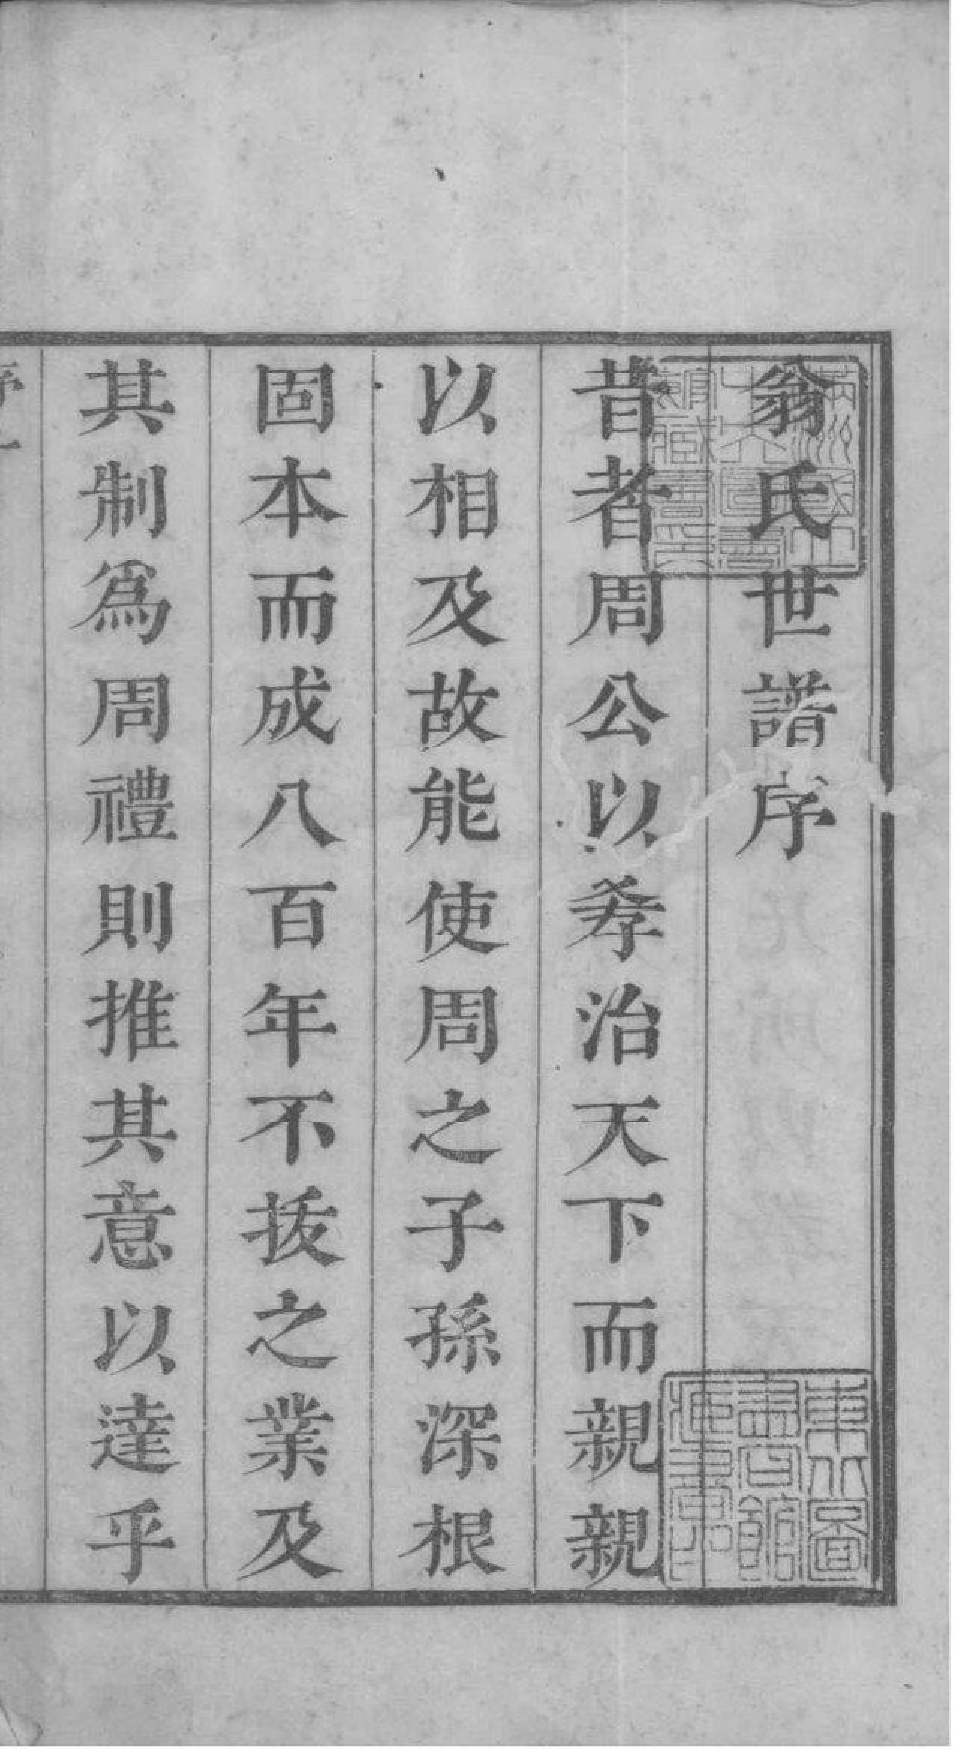 翁氏世譜序
昔者周公以孝治天下而親親
以相及故能使周之子孫深根
固本而成八百年不拔之業及
其制爲周禮則推其意以達乎
東北圖
書館